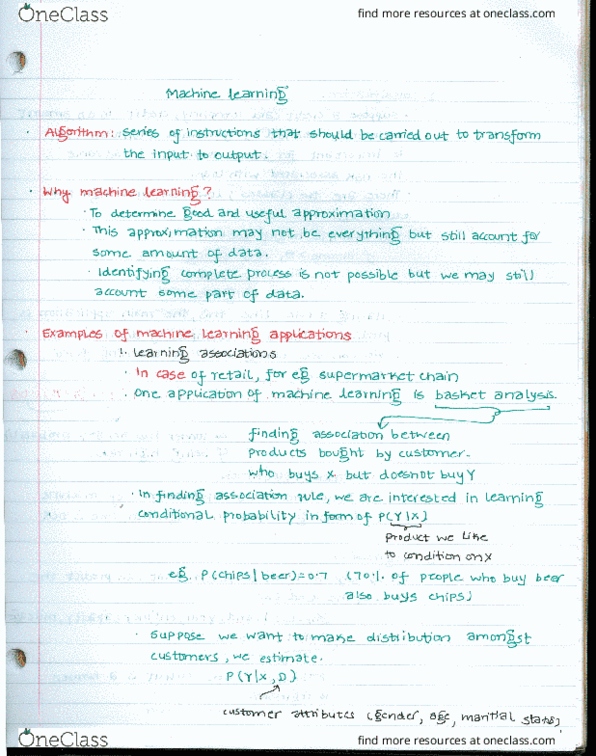 OneClass
find more resources at oneclass.com
Machine learning
Algorithm: series of instructions that should be carried out to transform
the input to output.
Why machine learning?
To determine good and useful approximation
This approximation may not be everything but still account for
some amount of data.
Identifying complete process is not possible but we may still
account some part of data.
Examples of machine learning applications
1. learning associations
In case of retail, for eg supermarket chain
One application of machine learning is basket analysis.
finding association between
products bought by customer.
who buys x but doesnot buy Y
In finding association rule, we are interested in learning
conditional probability in form of P(Y|X)
product we like
to condition on X
eg. P(chips|beer)=0.7 (70% of people who buy beer
also buys chips)
Suppose we want to make distribution amongst
customers, we estimate.
P(Y|X,D)
customer attributes (gender, age, marital status)
OneClass
find more resources at oneclass.com